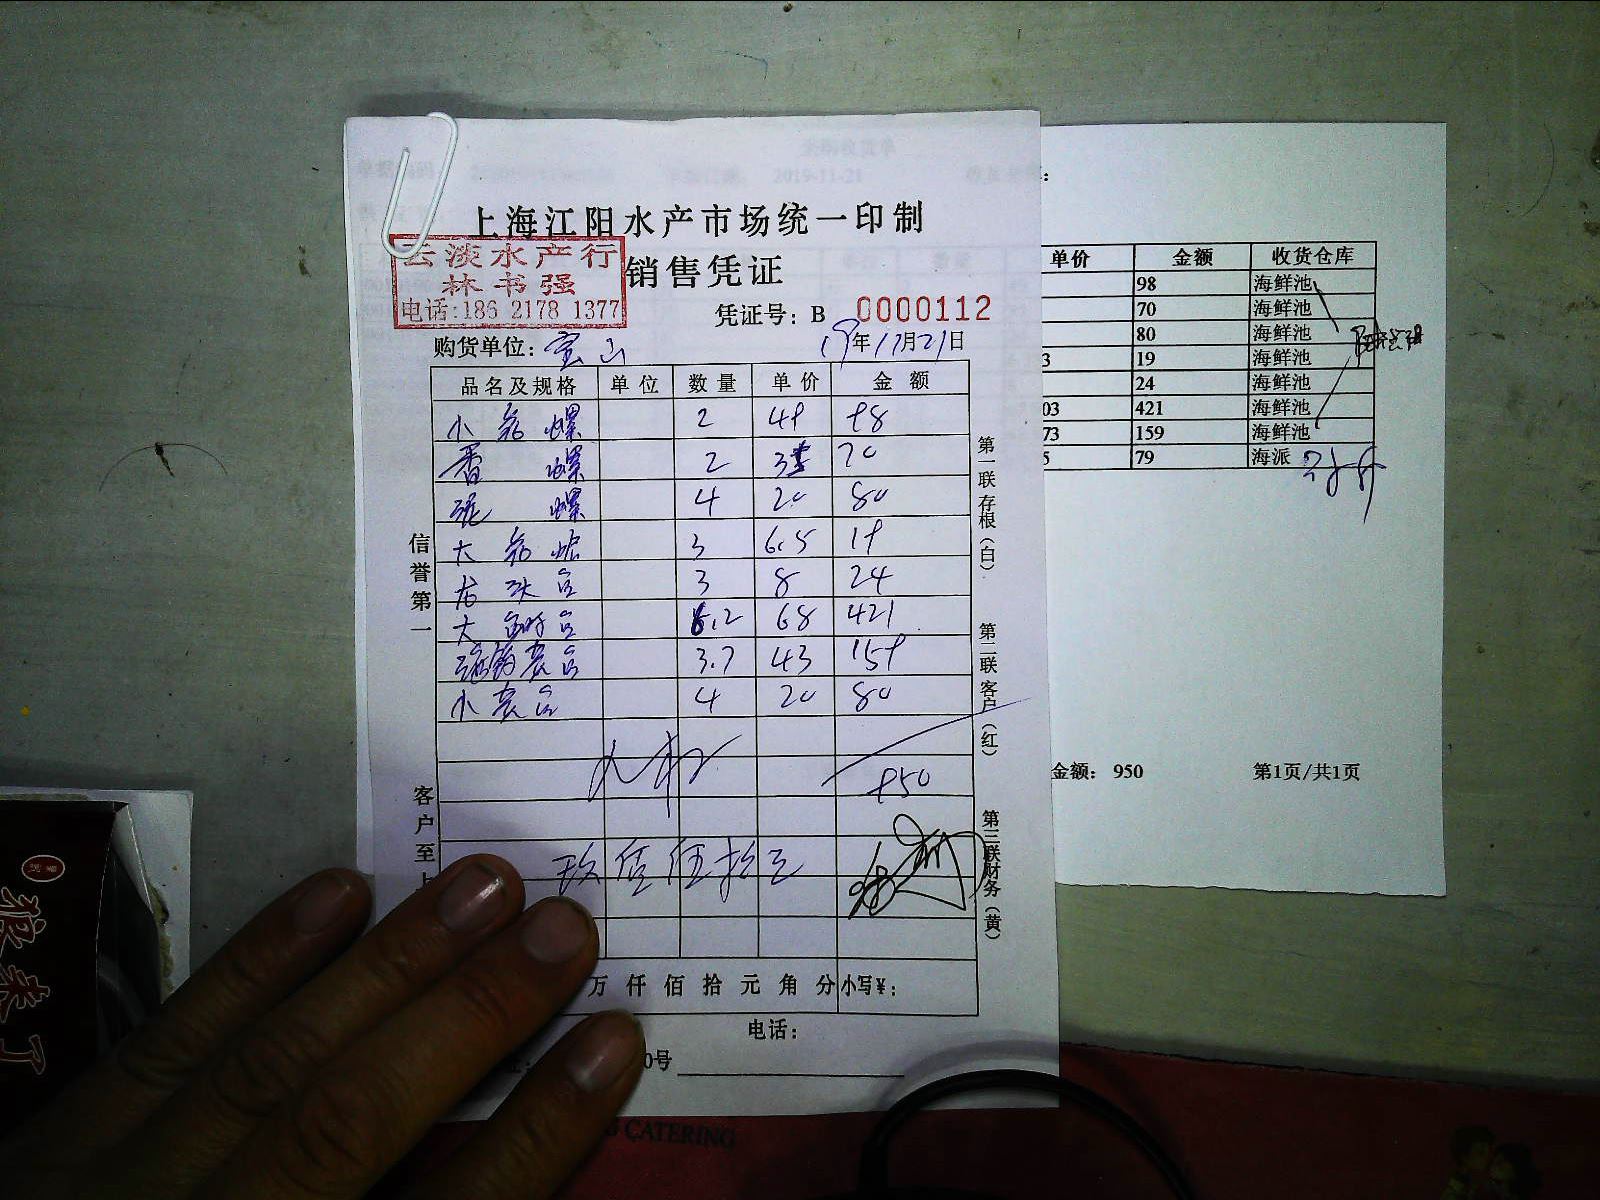 2019-11-21
上海江阳水产市场统一印制
云淡水产行
林书强
电话:186 2178 1377
销售凭证
凭证号: B 0000112
购货单位: 宝山 19年11月21日
品名及规格 单位 数量 单价 金额
小 螺 2 49 98
香 螺 2 35 70
泥 螺 4 20 80
大 3 6.5 19
3 8 24
大 6.2 68 421
3.7 43 159
小 4 20 80
950
玖佰伍拾元
万仟佰拾元角分 小写¥:
电话:
0号
信誉第一
客户至上
第一联存根(白)
第二联客户(红)
第三联财务(黄)
单价 金额 收货仓库
98 海鲜池
70 海鲜池
80 海鲜池
3 19 海鲜池
24 海鲜池
03 421 海鲜池
73 159 海鲜池
5 79 海派
金额: 950 第1页/共1页
狼来了
CATERING